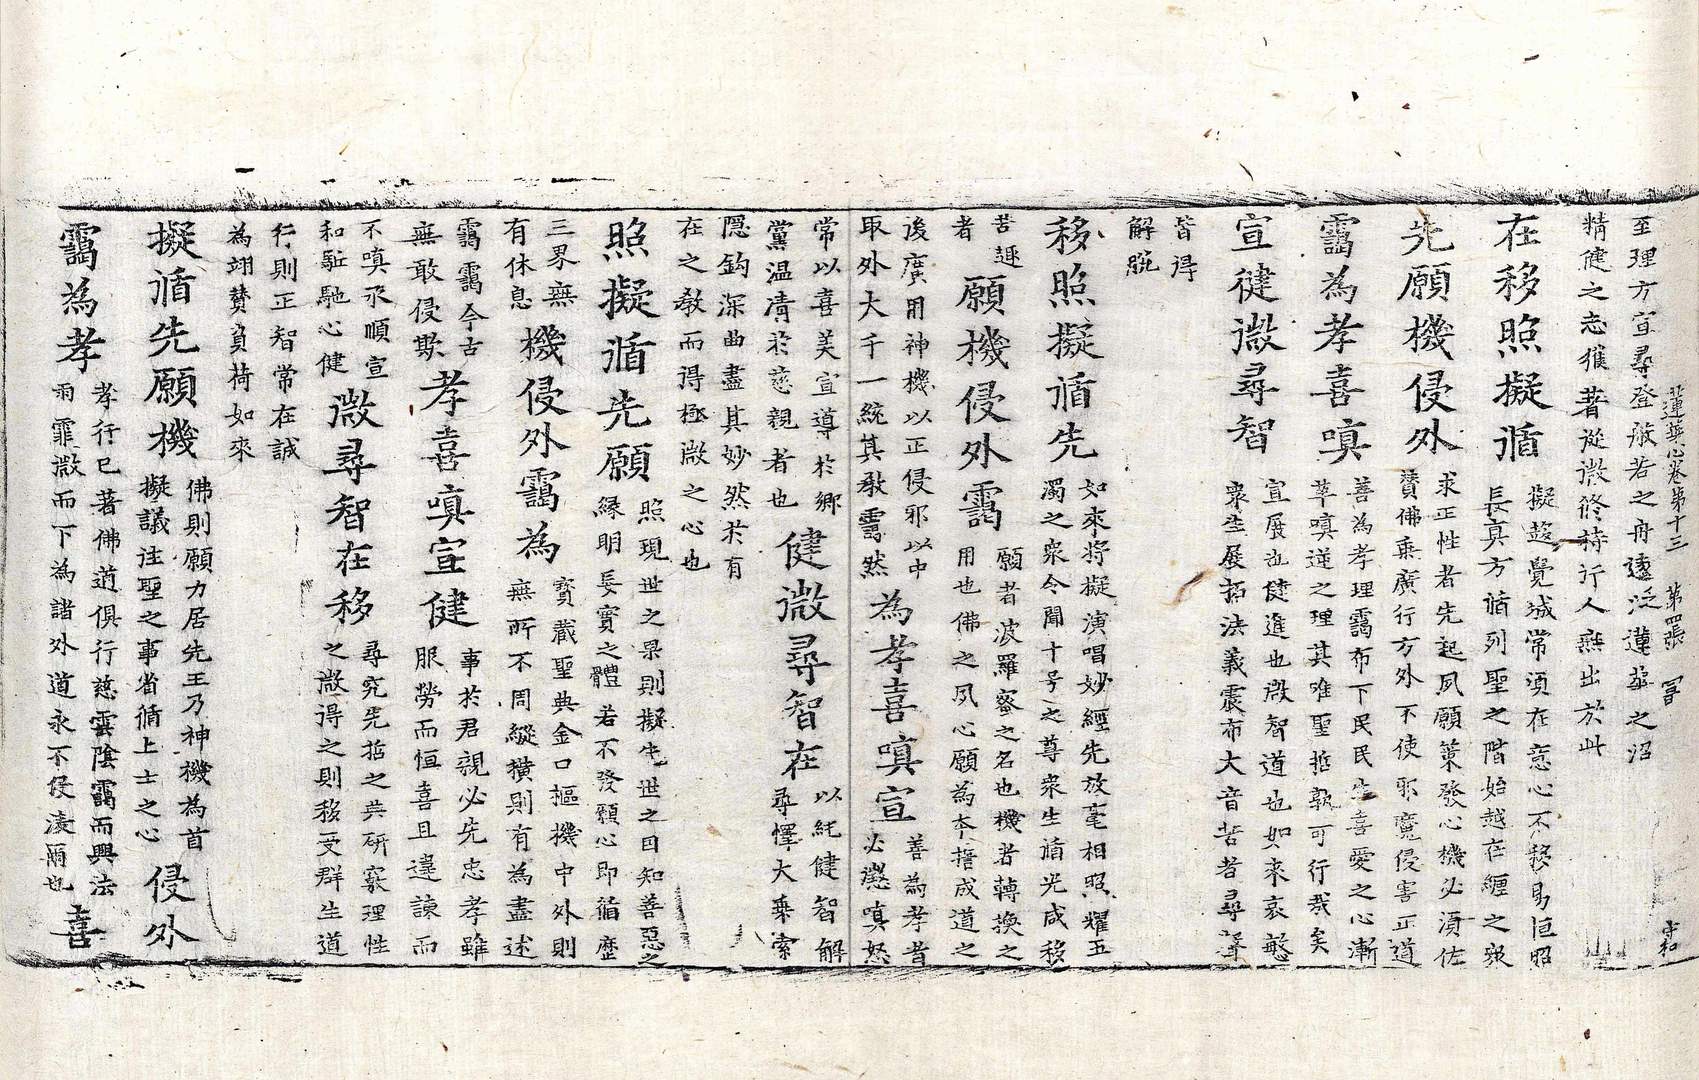 蓮華心卷第十三　第四張　冨　守和
至理方宣尋登般若之舟遠泛蓮華之沼
精健之志獲著從微修持行人無出於此
在移照擬循
擬趍覺城常須在意心不移易恒照
長真方循列聖之階始越在纏之衆
先願機侵外
求正性者先起夙願葉發心機必須佐
賛佛乘廣行方外不使邪魔侵害正道
靄為孝喜嗔
善為孝理靄布下民民生喜愛之心漸
草嗔逆之理其唯聖哲孰可行哉矣
宣健微尋智
宣展也健進也微智道也如來哀慜
衆生展揚法義震布大音苦者尋聲
皆得
解脫
移照擬循先
如來將擬演唱妙經先放毫相照耀五
濁之衆令聞十号之尊衆生循光咸移
苦趣
者
願機侵外靄
願者波羅蜜之名也機者轉換之
用也佛之夙心願為本擔成道之
後廣用神機以正侵邪以中
取外大千一統其教靄然
為孝喜嗔宣
善為孝者
必懲嗔怒
常以喜美宣導於鄉
黨温凊於慈親者也
健微尋智在
以純健智解
尋懌大乘索
隱鈎深曲盡其妙然於有
在之教而得極微之心也
照擬循先願
照現世之果則擬先世之因知善惡之
緣明長實之體若不發願心即循歷
三界無
有休息
機侵外靄為
寳藏聖典金口樞機中外則
無所不周縱橫則有為盡述
靄靄今古
無敢侵欺
孝喜嗔宣健
事於君親必先忠孝雖
服勞而恒喜且違諫而
不嗔承順宣
和駈馳心健
微尋智在移
尋究先哲之典研窮理性
之微得之則移受群生道
行則正智常在誠
為翊賛負荷如來
擬循先願機
佛則願力居先王乃神機為首
擬議注聖之事省循上士之心
侵外
靄為孝
孝行已著佛道俱行慈雲陰靄而興法
雨霏微而下為諸外道永不侵凌爾也
喜